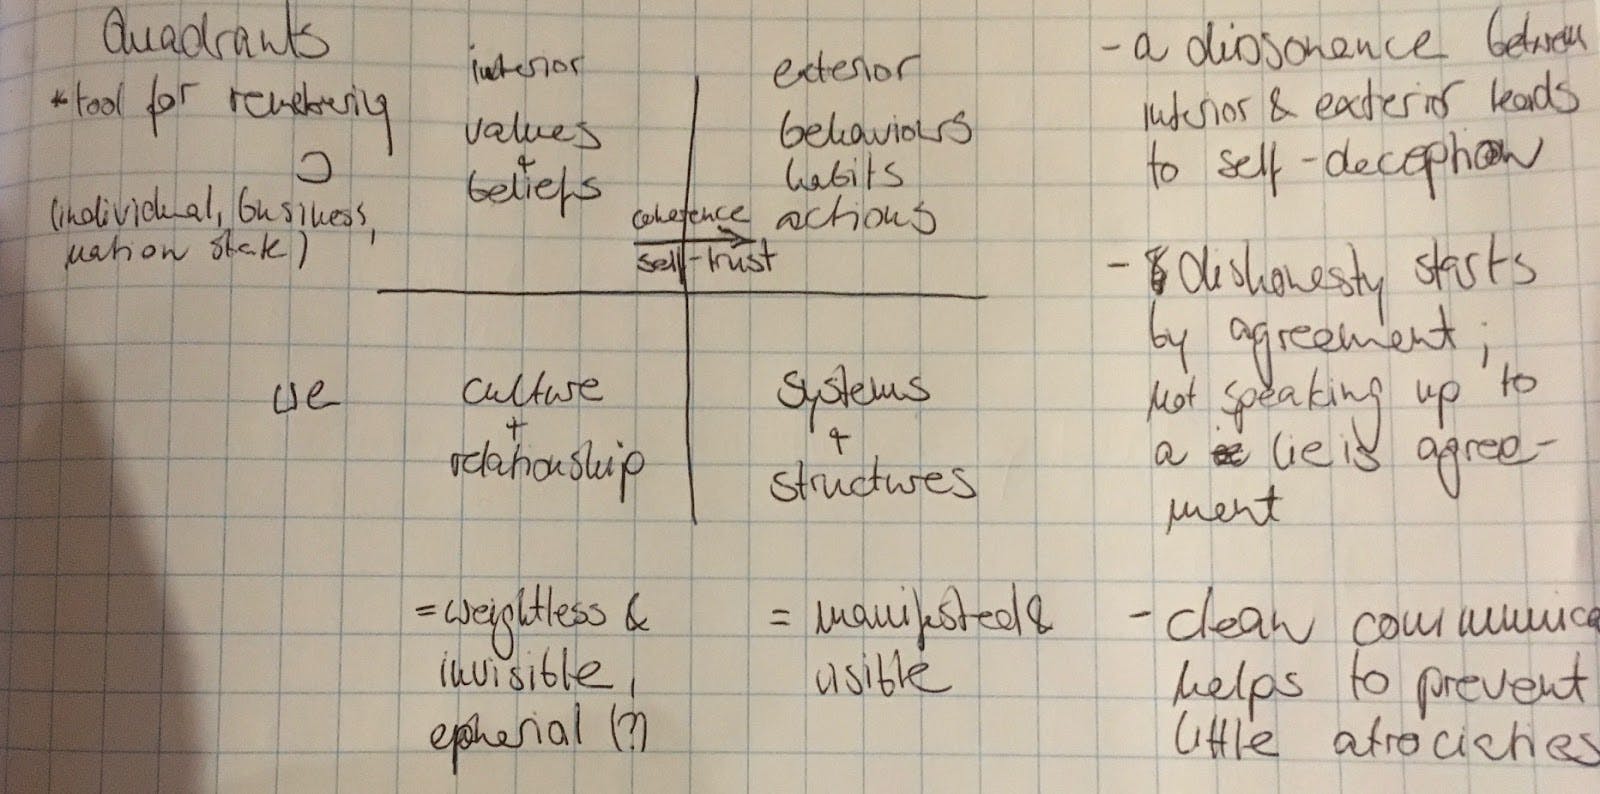 Quadrants
*tool for
(individual, business,
nation state)
interior
values
+
beliefs
exterior
behaviours
habits
actions
coherence
self-trust
we
culture
+
relationship
systems
+
structures
= weightless &
invisible,
epherial (?)
= manifested &
visible
- a dissonance between
interior & exterior leads
to self-deception
- dishonesty starts
by agreement;
not speaking up to
a lie is agree-
ment
- clean communica
helps to prevent
little atrocieties